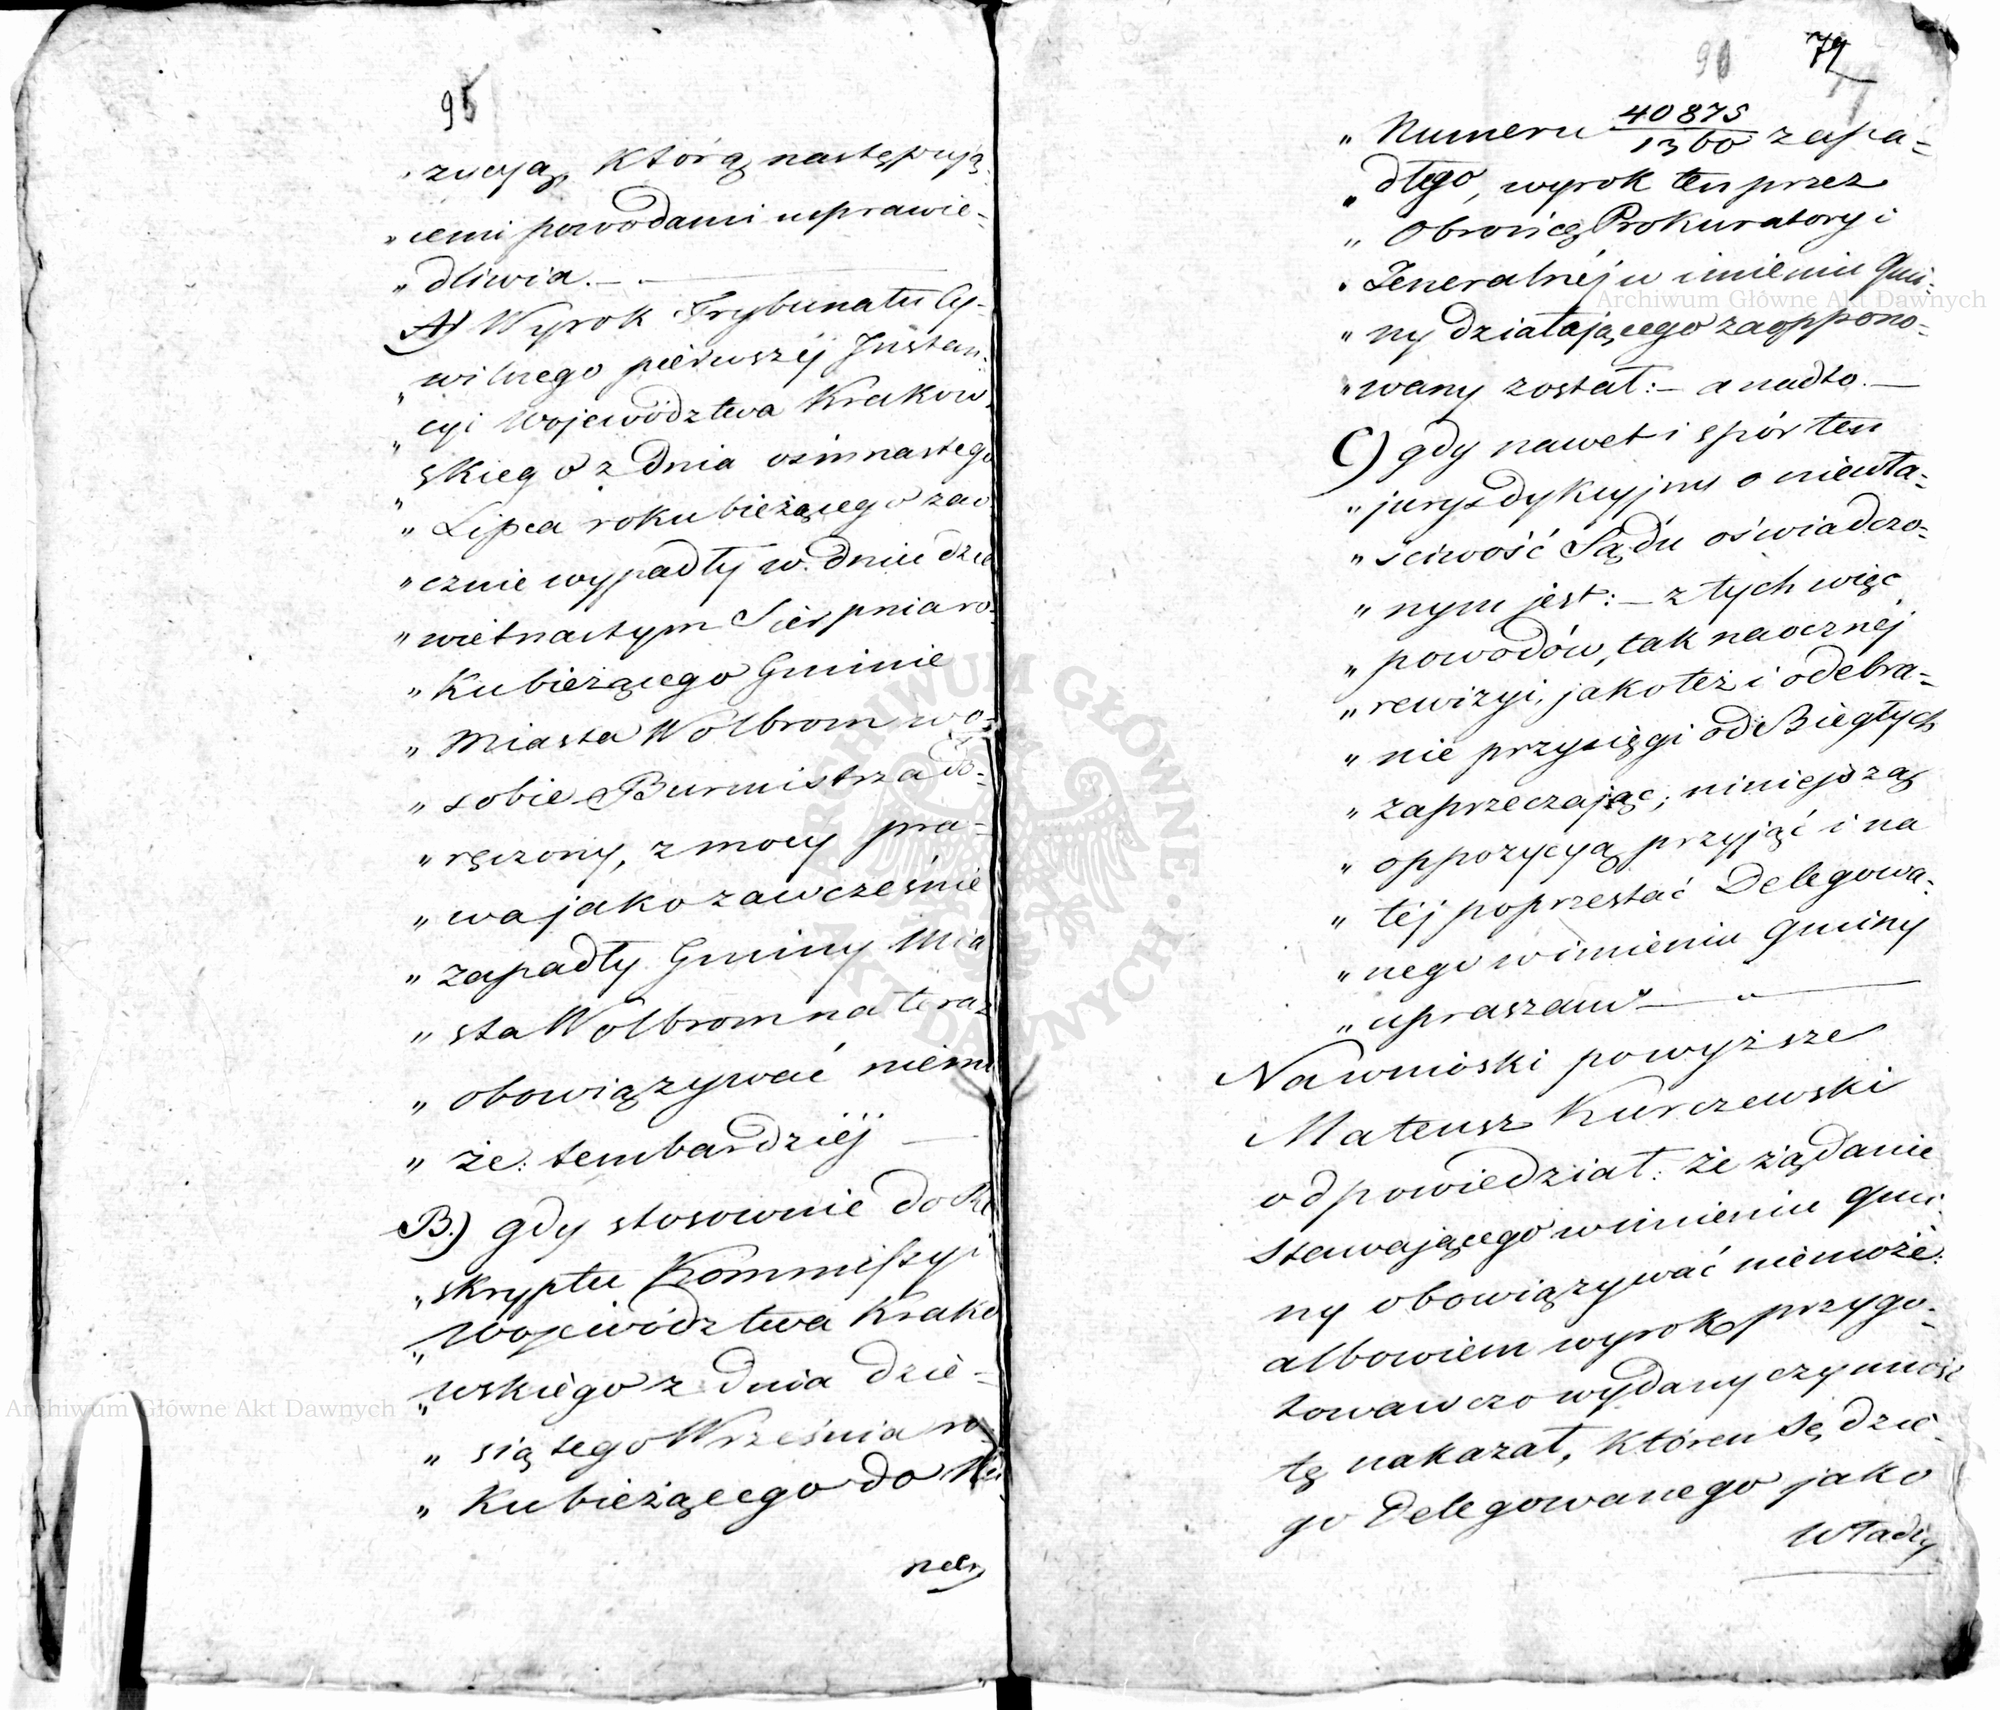 95
„ zycyą, którą następują-
„ cemi powodami usprawie-
„ dliwia. —
A) Wyrok Trybunału Cy-
„ wilnego pierwszéj Instan-
„ cyi Województwa Krakow-
„ skiego z dnia ośmnastego
„ Lipca roku bieżącego zao-
„ cznie wypadły w dniu dzie
„ więtnastym Sierpnia ro-
„ ku bieżącego Gminie
„ Miasta Wolbrom w o-
„ sobie Burmistrza do-
„ ręczony, z mocy pra-
„ wa jako zawcześnie
„ zapadły Gminy Mia
„ sta Wolbrom na teraz
„ obowiązywać niemo
„ że: tembardziéj —
B.) gdy stosownie do Re
„ skryptu Kommissyi
„ Województwa Krako
„ wskiego z dnia dzie-
„ siątego Września ro-
„ ku bieżącego do Nu
neru
90 79
„ Numeru 40875/1360 zapa-
„ dłego, wyrok ten przez
„ Obrońcę Prokuratoryi
„ Jeneralnéj w imieniu Gmi-
„ ny działającego zaoppono-
„ wany został: — a nadto. —
C) gdy nawet i spór ten
„ jurysdykcyjny o niewła-
„ sciwość Sądu oświadczo-
„ nym jest: — z tych więc
„ powodów, tak naocznéj
„ rewizyi, jako też i odebra-
„ nie przysięgi od Biegłych
„ zaprzeczając; niniejszą
„ oppozycyą przyjąć i na
„ téj poprzestać Delegowa-
„ nego w imieniu Gminy
„ upraszam" —
Na wnioski powyższe
Mateusz Kurczewski
odpowiedział: że żądanie
stawającego w imieniu Gmi
ny obowiązywać niemoże:
albowiem wyrok przygo-
towawczo wydany czynność
tę nakazał, któren Sędzie-
go Delegowanego jako
władzy
Archiwum Główne Akt Dawnych
Archiwum Główne Akt Dawnych
ARCHIWUM GŁÓWNE AKT DAWNYCH